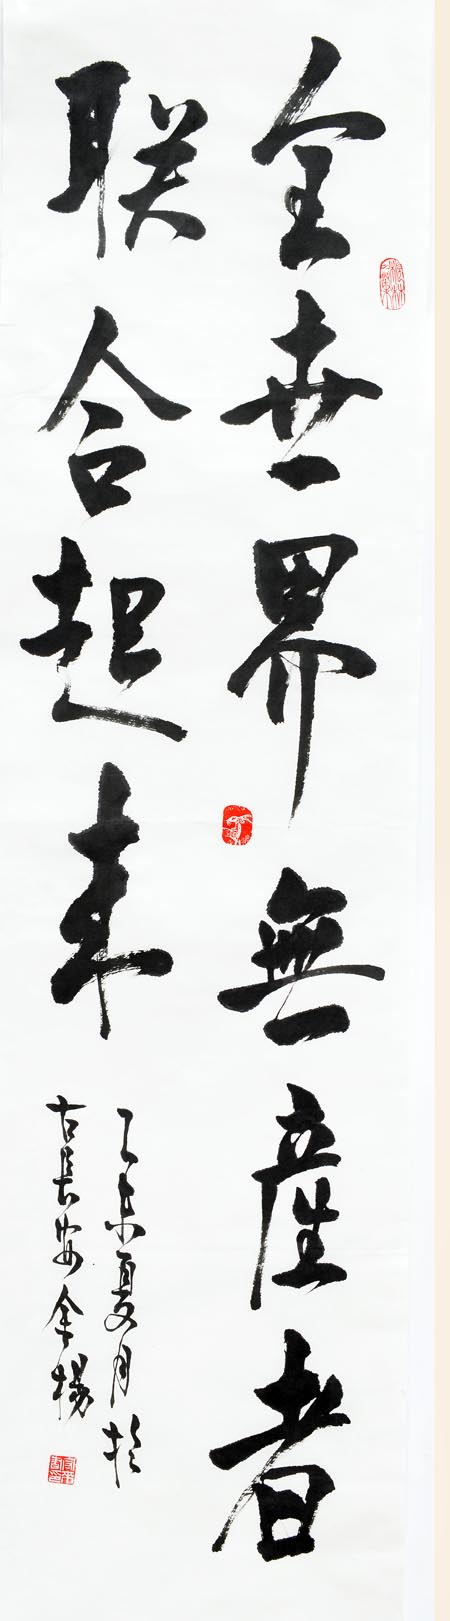 全世界無產者
联合起来
乙未夏月於
古長安金楊